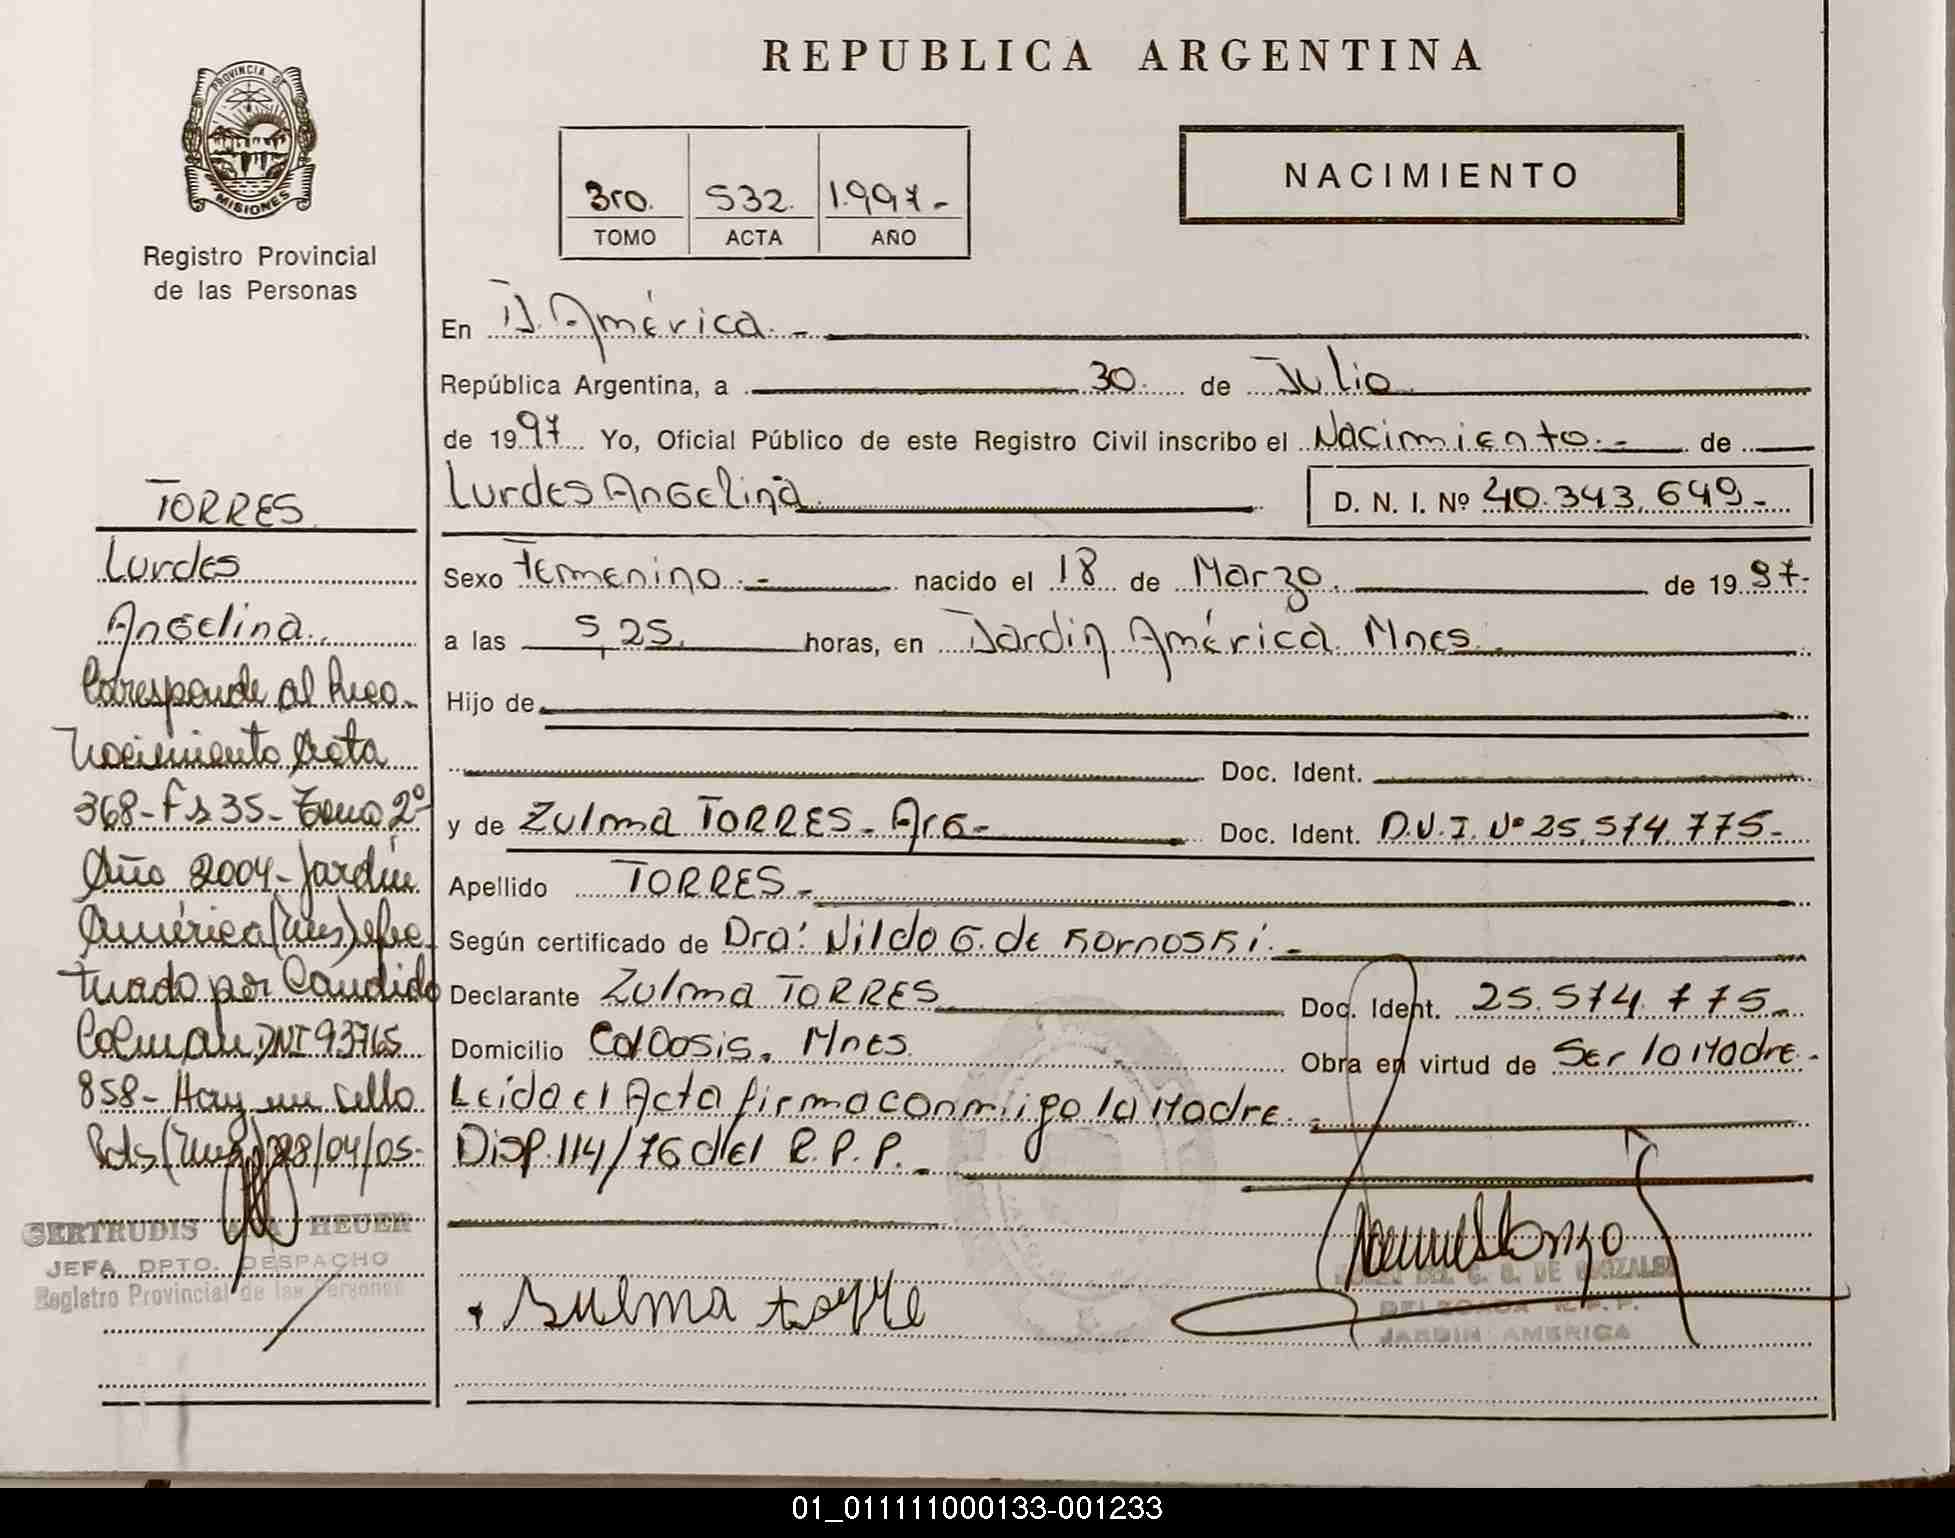 REPUBLICA ARGENTINA
PROVINCIA DE
MISIONES
Registro Provincial
de las Personas
NACIMIENTO
3ro. 532. 1.997.-
TOMO ACTA AÑO
En J. América. -
República Argentina, a 30. de Julio
de 1997 Yo, Oficial Público de este Registro Civil inscribo el Nacimiento.- de
Lurdes Angelina D. N. I. Nº 40.343.649-
Sexo Femenino.- nacido el 18 de Marzo. de 1997-
a las 5,25. horas, en Jardin América Mnes.
Hijo de
Doc. Ident.
y de Zulma TORRES- Arg- Doc. Ident. D.N.I. Nº 25.574.775-
Apellido TORRES-
Según certificado de Dra: Nilda G. de Kornoski.-
Declarante Zulma TORRES Doc. Ident. 25.574.775-
Domicilio Col Oasis. Mnes. Obra en virtud de Ser la Madre.-
Leida el Acta firma conmigo la Madre.-
Disp. 114/76 del R.P.P.-
Sulma torre
DE GONZALEZ
DELEGADA R.P.P.
JARDIN AMERICA
TORRES
Lurdes
Angelina.
Corresponde al Reco-
nocimiento Acta
368- Fs 35- Tomo 2º
Año 2004- Jardín
América (Mnes) efec
tuado por Candido
Colman DNI 93765
858- Hay un sello
Pdas (Mnes) 28/04/05-
GERTRUDIS HEUER
JEFA DPTO. DESPACHO
Registro Provincial de las Personas
01_011111000133-001233